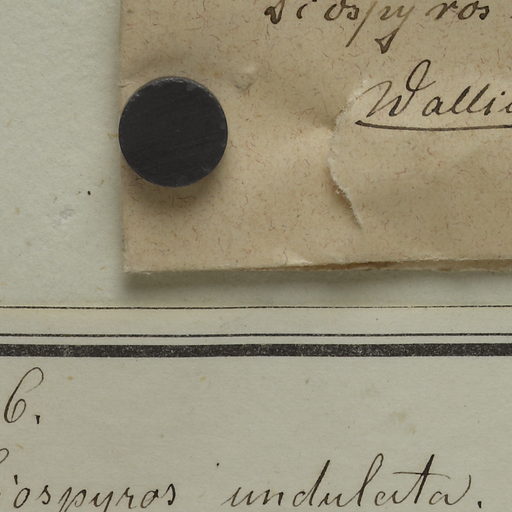 Diospyros
Wallic
6.
Diospyros undulata.